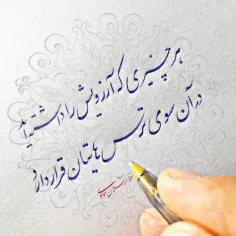 هر چیزی که آرزویش را داشته‌اید
در آن سوی ترس هایتان قرار دارد